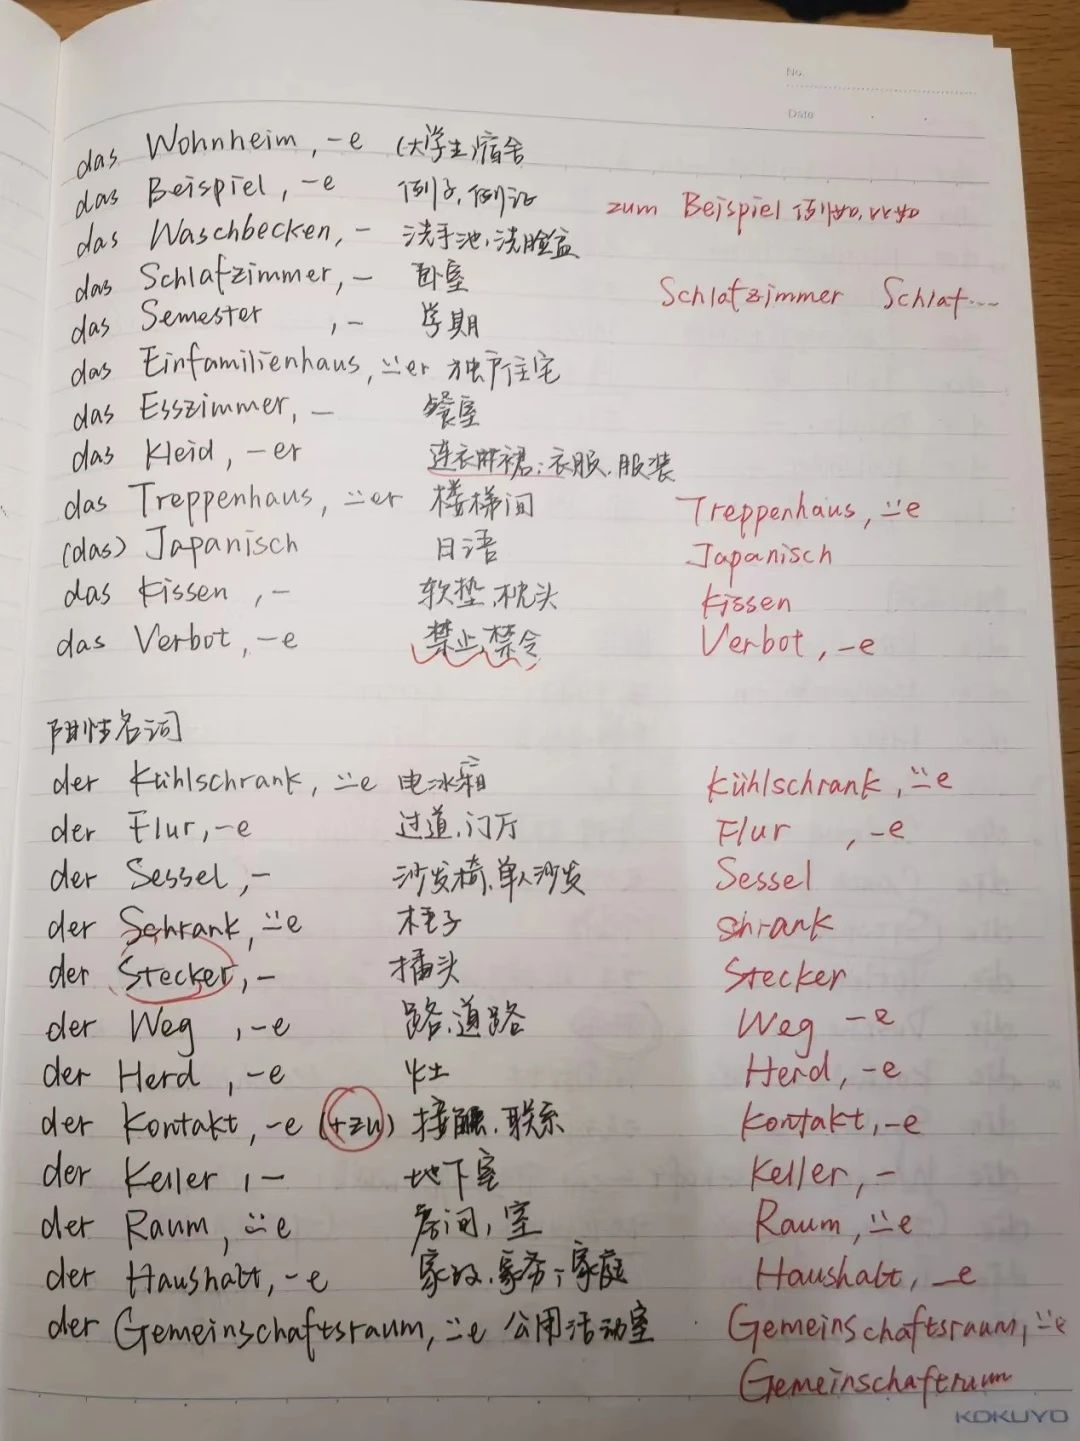 No.
Date
das Wohnheim, -e (大学生)宿舍
das Beispiel, -e 例子,例证 zum Beispiel 例如,比如
das Waschbecken, - 洗手池,洗脸盆
das Schlafzimmer, - 卧室 Schlafzimmer Schlaf...
das Semester , - 学期
das Einfamilienhaus, ⸚er 独户住宅
das Esszimmer, - 餐室
das Kleid, -er 连衣裙;衣服,服装
das Treppenhaus, ⸚er 楼梯间 Treppenhaus, ⸚e
(das) Japanisch 日语 Japanisch
das Kissen , - 软垫,枕头 Kissen
das Verbot, -e 禁止,禁令 Verbot, -e
阳性名词
der Kühlschrank, ⸚e 电冰箱 Kühlschrank, ⸚e
der Flur, -e 过道,门厅 Flur , -e
der Sessel, - 沙发椅,单人沙发 Sessel
der Schrank, ⸚e 柜子 Shrank
der Stecker, - 插头 Stecker
der Weg , -e 路,道路 Weg -e
der Herd , -e 灶 Herd, -e
der Kontakt, -e (+zu) 接触,联系 Kontakt, -e
der Keller , - 地下室 Keller, -
der Raum, ⸚e 房间,室 Raum, ⸚e
der Haushalt, -e 家政,家务;家庭 Haushalt, -e
der Gemeinschaftsraum, ⸚e 公用活动室 Gemeinschaftsraum, ⸚e
Gemeinschaftraum
KOKUYO